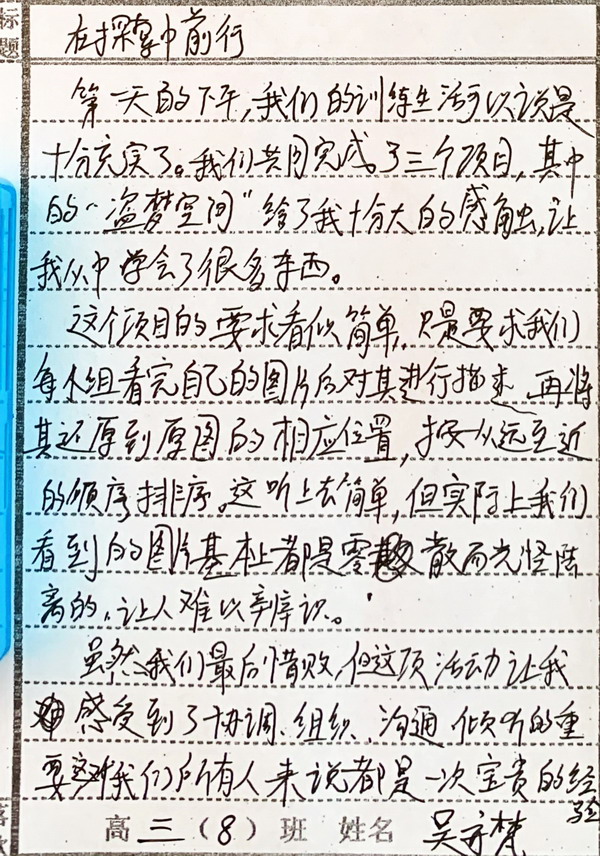 标
题
在探索中前行
第一天的下午,我们的训练生活可以说是
十分充实了。我们共同完成了三个项目,其中
的“盗梦空间”给了我十分大的感触,让
我从中学会了很多东西。
这个项目的要求看似简单,只是要求我们
每个组看完自己的图片后对其进行描述,再将
其还原到原图的相应位置,按从远至近
的顺序排序。这听上去简单,但实际上我们
看到的图片基本上都是零散而光怪陆
离的,让人难以辨识。
虽然我们最后惜败,但这项活动让我
感受到了协调、组织、沟通、倾听的重
要,这对我们所有人来说都是一次宝贵的经
验
高三(8)班 姓名 吴 梵
落